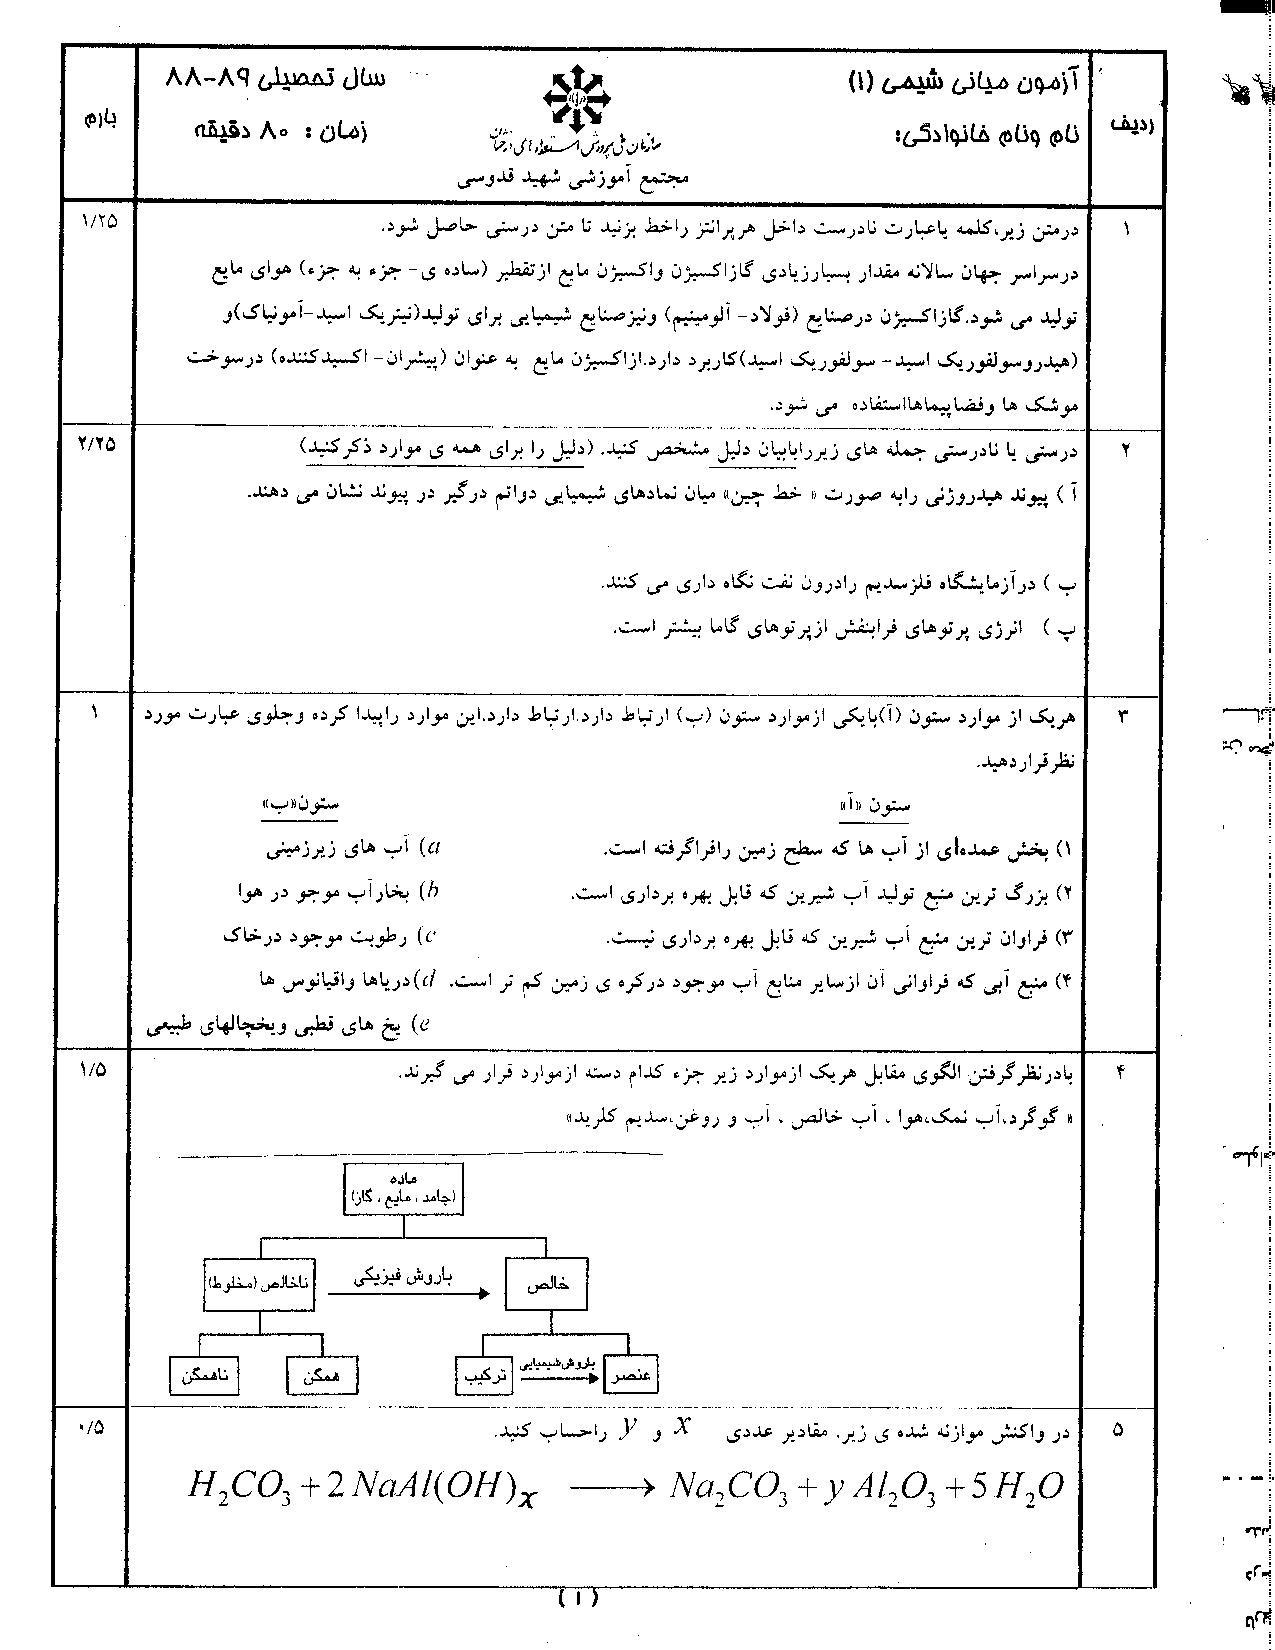 ردیف
آزمون میانی شیمی (۱)
سال تحصیلی ۸۹-۸۸
بارم
نام ونام خانوادگی:
زمان : ۸۰ دقیقه
مجتمع آموزشی شهید قدوسی
۱
درمتن زیر،کلمه یاعبارت نادرست داخل هرپرانتز راخط بزنید تا متن درستی حاصل شود.
۱/۲۵
درسراسر جهان سالانه مقدار بسیارزیادی گازاکسیژن واکسیژن مایع ازتقطیر (ساده ی- جزء به جزء) هوای مایع
تولید می شود.گازاکسیژن درصنایع (فولاد- آلومینیم) ونیزصنایع شیمیایی برای تولید(نیتریک اسید-آمونیاک)و
(هیدروسولفوریک اسید- سولفوریک اسید)کاربرد دارد.ازاکسیژن مایع به عنوان (پیشران- اکسیدکننده) درسوخت
موشک ها وفضاپیماهااستفاده می شود.
۲
درستی یا نادرستی جمله های زیررابابیان دلیل مشخص کنید. (دلیل را برای همه ی موارد ذکرکنید)
۲/۲۵
آ ) پیوند هیدروژنی رابه صورت « خط چین» میان نمادهای شیمیایی دواتم درگیر در پیوند نشان می دهند.
ب ) درآزمایشگاه فلزسدیم رادرون نفت نگاه داری می کنند.
پ ) انرژی پرتوهای فرابنفش ازپرتوهای گاما بیشتر است.
۳
هریک از موارد ستون (آ)بایکی ازموارد ستون (ب) ارتباط دارد.ارتباط دارد.این موارد راپیدا کرده وجلوی عبارت مورد
۱
نظرقراردهید.
ستون «آ»
ستون«ب»
۱) بخش عمده‌ای از آب ها که سطح زمین رافراگرفته است.
a) آب های زیرزمینی
۲) بزرگ ترین منبع تولید آب شیرین که قابل بهره برداری است.
b) بخارآب موجو در هوا
۳) فراوان ترین منبع آب شیرین که قابل بهره برداری نیست.
c) رطوبت موجود درخاک
۴) منبع آبی که فراوانی آن ازسایر منابع آب موجود درکره ی زمین کم تر است.
d)دریاها واقیانوس ها
e) یخ های قطبی ویخچالهای طبیعی
۴
بادرنظرگرفتن الگوی مقابل هریک ازموارد زیر جزء کدام دسته ازموارد قرار می گیرند.
۱/۵
« گوگرد،آب نمک،هوا ، آب خالص ، آب و روغن،سدیم کلرید»
ماده
(جامد ، مایع ، گاز)
خالص
باروش فیزیکی
ناخالص (مخلوط)
عنصر
باروش شیمیایی
ترکیب
همگن
ناهمگن
۵
در واکنش موازنه شده ی زیر، مقادیر عددی x و y راحساب کنید.
۰/۵
H₂CO₃ + 2 NaAl(OH)ₓ ⟶ Na₂CO₃ + y Al₂O₃ + 5 H₂O
(۱)